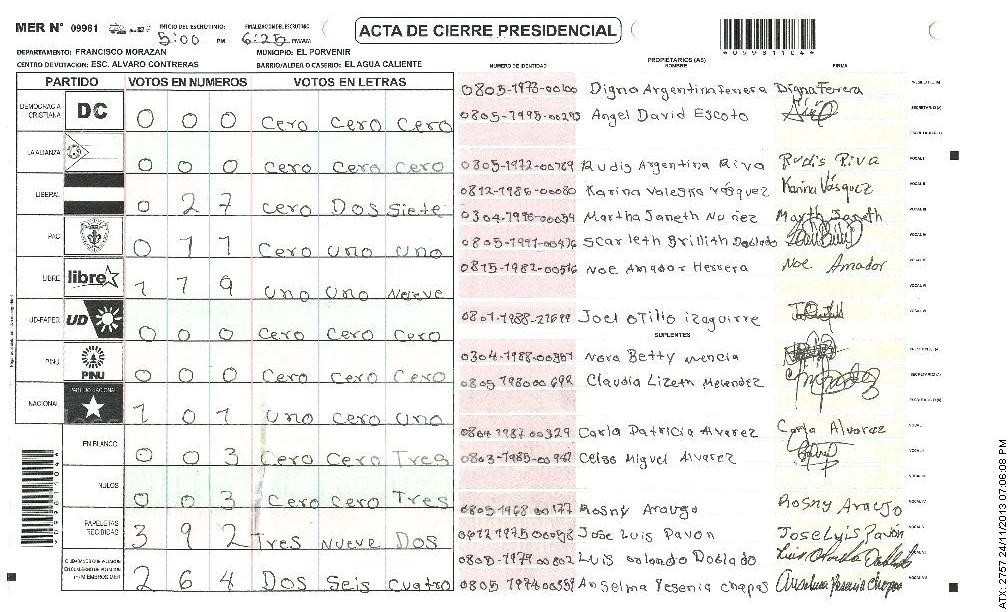 MER N° 09981 INICIO DEL ESCRUTINIO: 5:00 PM FINALIZACION DEL ESCRUTINIO 6:25 PM/AM
ACTA DE CIERRE PRESIDENCIAL
DEPARTAMENTO: FRANCISCO MORAZAN MUNICIPIO: EL PORVENIR
CENTRO DE VOTACION: ESC. ALVARO CONTRERAS BARRIO/ALDEA O CASERIO: EL AGUA CALIENTE
PARTIDO VOTOS EN NUMEROS VOTOS EN LETRAS
DEMOCRACIA CRISTIANA DC 0 0 0 Cero Cero Cero
LA ALIANZA 0 0 0 Cero Cero Cero
LIBERAL 0 2 7 Cero Dos Siete
PAC 0 1 1 Cero uno uno
LIBRE libre 1 1 9 uno uno Nueve
UD-FAPER UD 0 0 0 Cero Cero Cero
PINU PINU 0 0 0 Cero Cero Cero
NACIONAL PARTIDO NACIONAL 1 0 1 uno cero uno
EN BLANCO 0 0 3 Cero Cero Tres
NULOS 0 0 3 Cero cero Tres
PAPELETAS RECIBIDAS 3 9 2 Tres Nueve Dos
2 6 4 Dos Seis cuatro
NUMERO DE IDENTIDAD PROPIETARIOS (AS) NOMBRE FIRMA
Digna Argentina Ferrera Digna Ferera
Angel David Escoto
0805-1972-00789 Rudis Argentina Riva Rudis Riva
0812-1986-00080 Karina Valeska Vásquez Karina Vásquez
Martha Janeth Nuñez Marth Janeth
Scarleth Grillith Doblado
0815-1982-00516 Noe Amador Herrera Noe Amador
0801-1988-21699 Joel Otilio izaguirre
SUPLENTES
Nora Betty mencia
0805 1980 00692 Claudia Lizeth Melendez
0801 1987 00329 Carla Patricia Alvarez Carla Alvarez
Celso Miguel Alvarez
0805-1968 00177 Rosny Araujo Rosny Araujo
Jose Luis Pavon Jose Luis Pavón
0805-1979 00802 Luis orlando Doblado
Anselma Yesenia chapas
ATX 2757 24/11/2013 07:06:08 PM